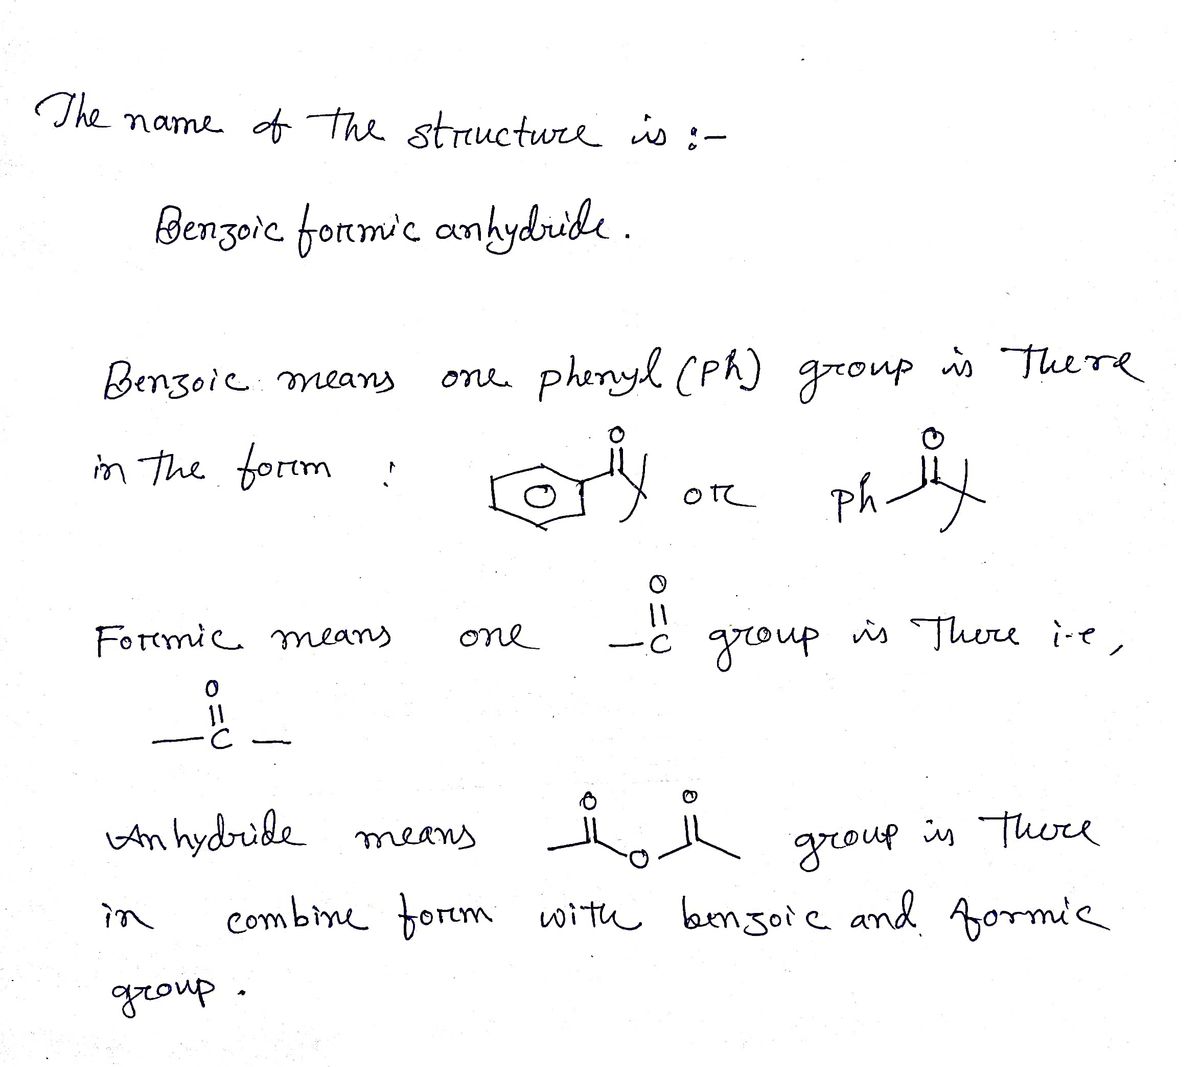 The name of the structure is :-
Benzoic formic anhydride.
Benzoic means one phenyl (Ph) group is there
in the form : O or Ph O
O
||
Formic means one -C group is there i-e,
O
||
-C-
O O
Anhydride means O group is there
in combine form with benzoic and formic
group.